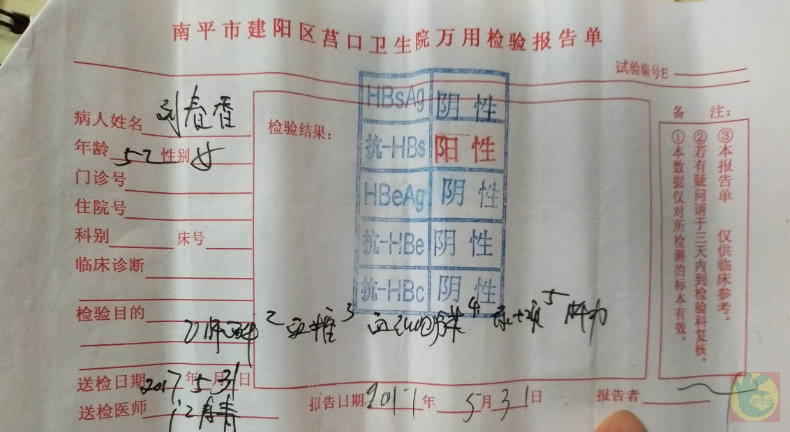 南平市建阳区莒口卫生院万用检验报告单
试验编号E
病人姓名 刘春香
年龄 52 性别 女
门诊号
住院号
科别 床号
临床诊断
检验目的
送检日期 2017年5月31日
送检医师
检验结果:
HBsAg 阴性
抗-HBs 阳性
HBeAg 阴性
抗-HBe 阴性
抗-HBc 阴性
2 血糖 3 4 5
报告日期 2017年5月31日
报告者
备 注:
①本数据仅对所检测的标本有效。
②若有疑问请于三天内到检验科复核。
③本报告单 仅供临床参考。